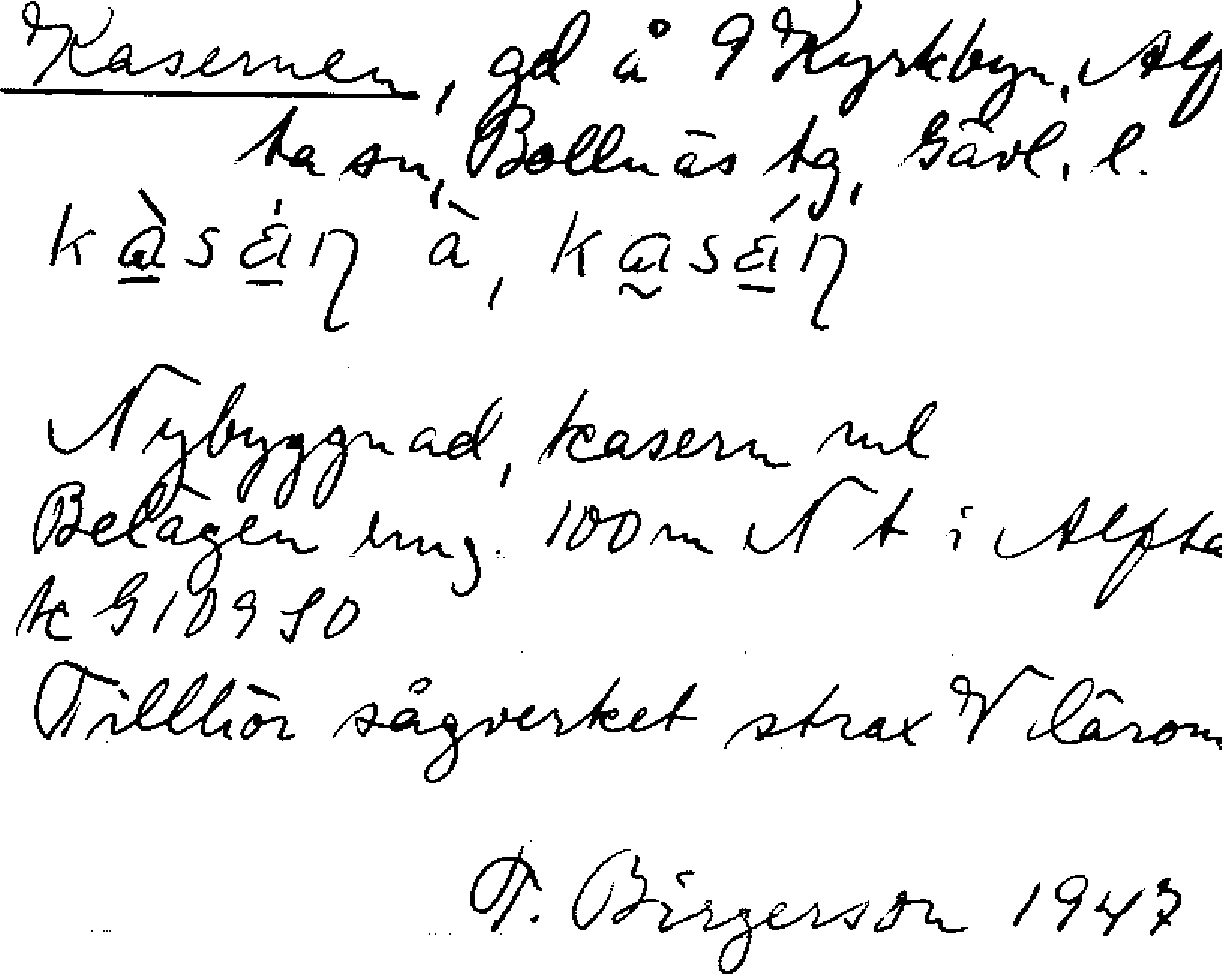 Kasernen, gd å 9 Kyrkbyn, Alf
ta sn, Bollnäs tg, Gävl. l.
kàsáꞃ à, kasáꞃ
Nybyggnad, kasern ml
Belägen ung. 100 m N t i Alfta
k G 109 50
Tillhör sågverket strax V därom
T. Birgerson 1947